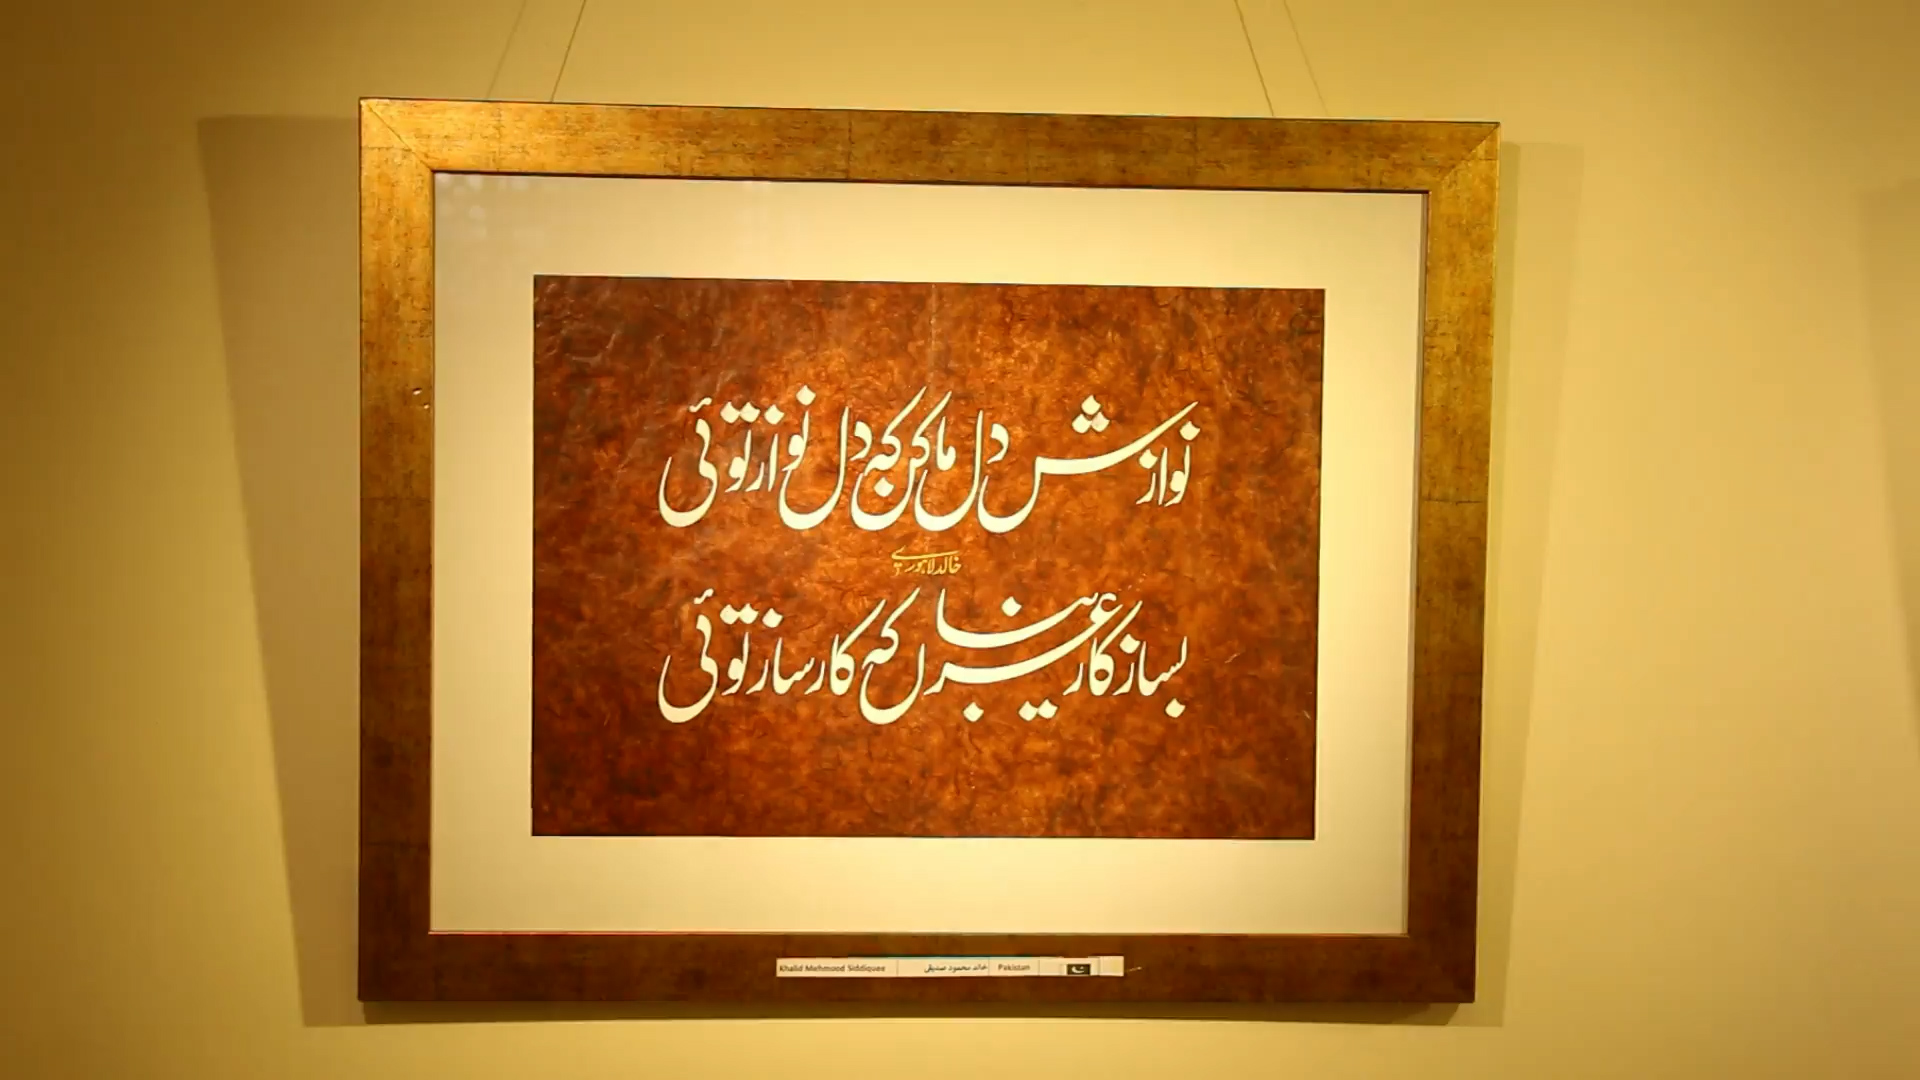 نوازش دل ما کن که دل نواز توئی
خالد لاہوری
بساز کار غریباں که کار ساز توئی
Khalid Mehmood Siddiquee خالد محمود صدیقی Pakistan